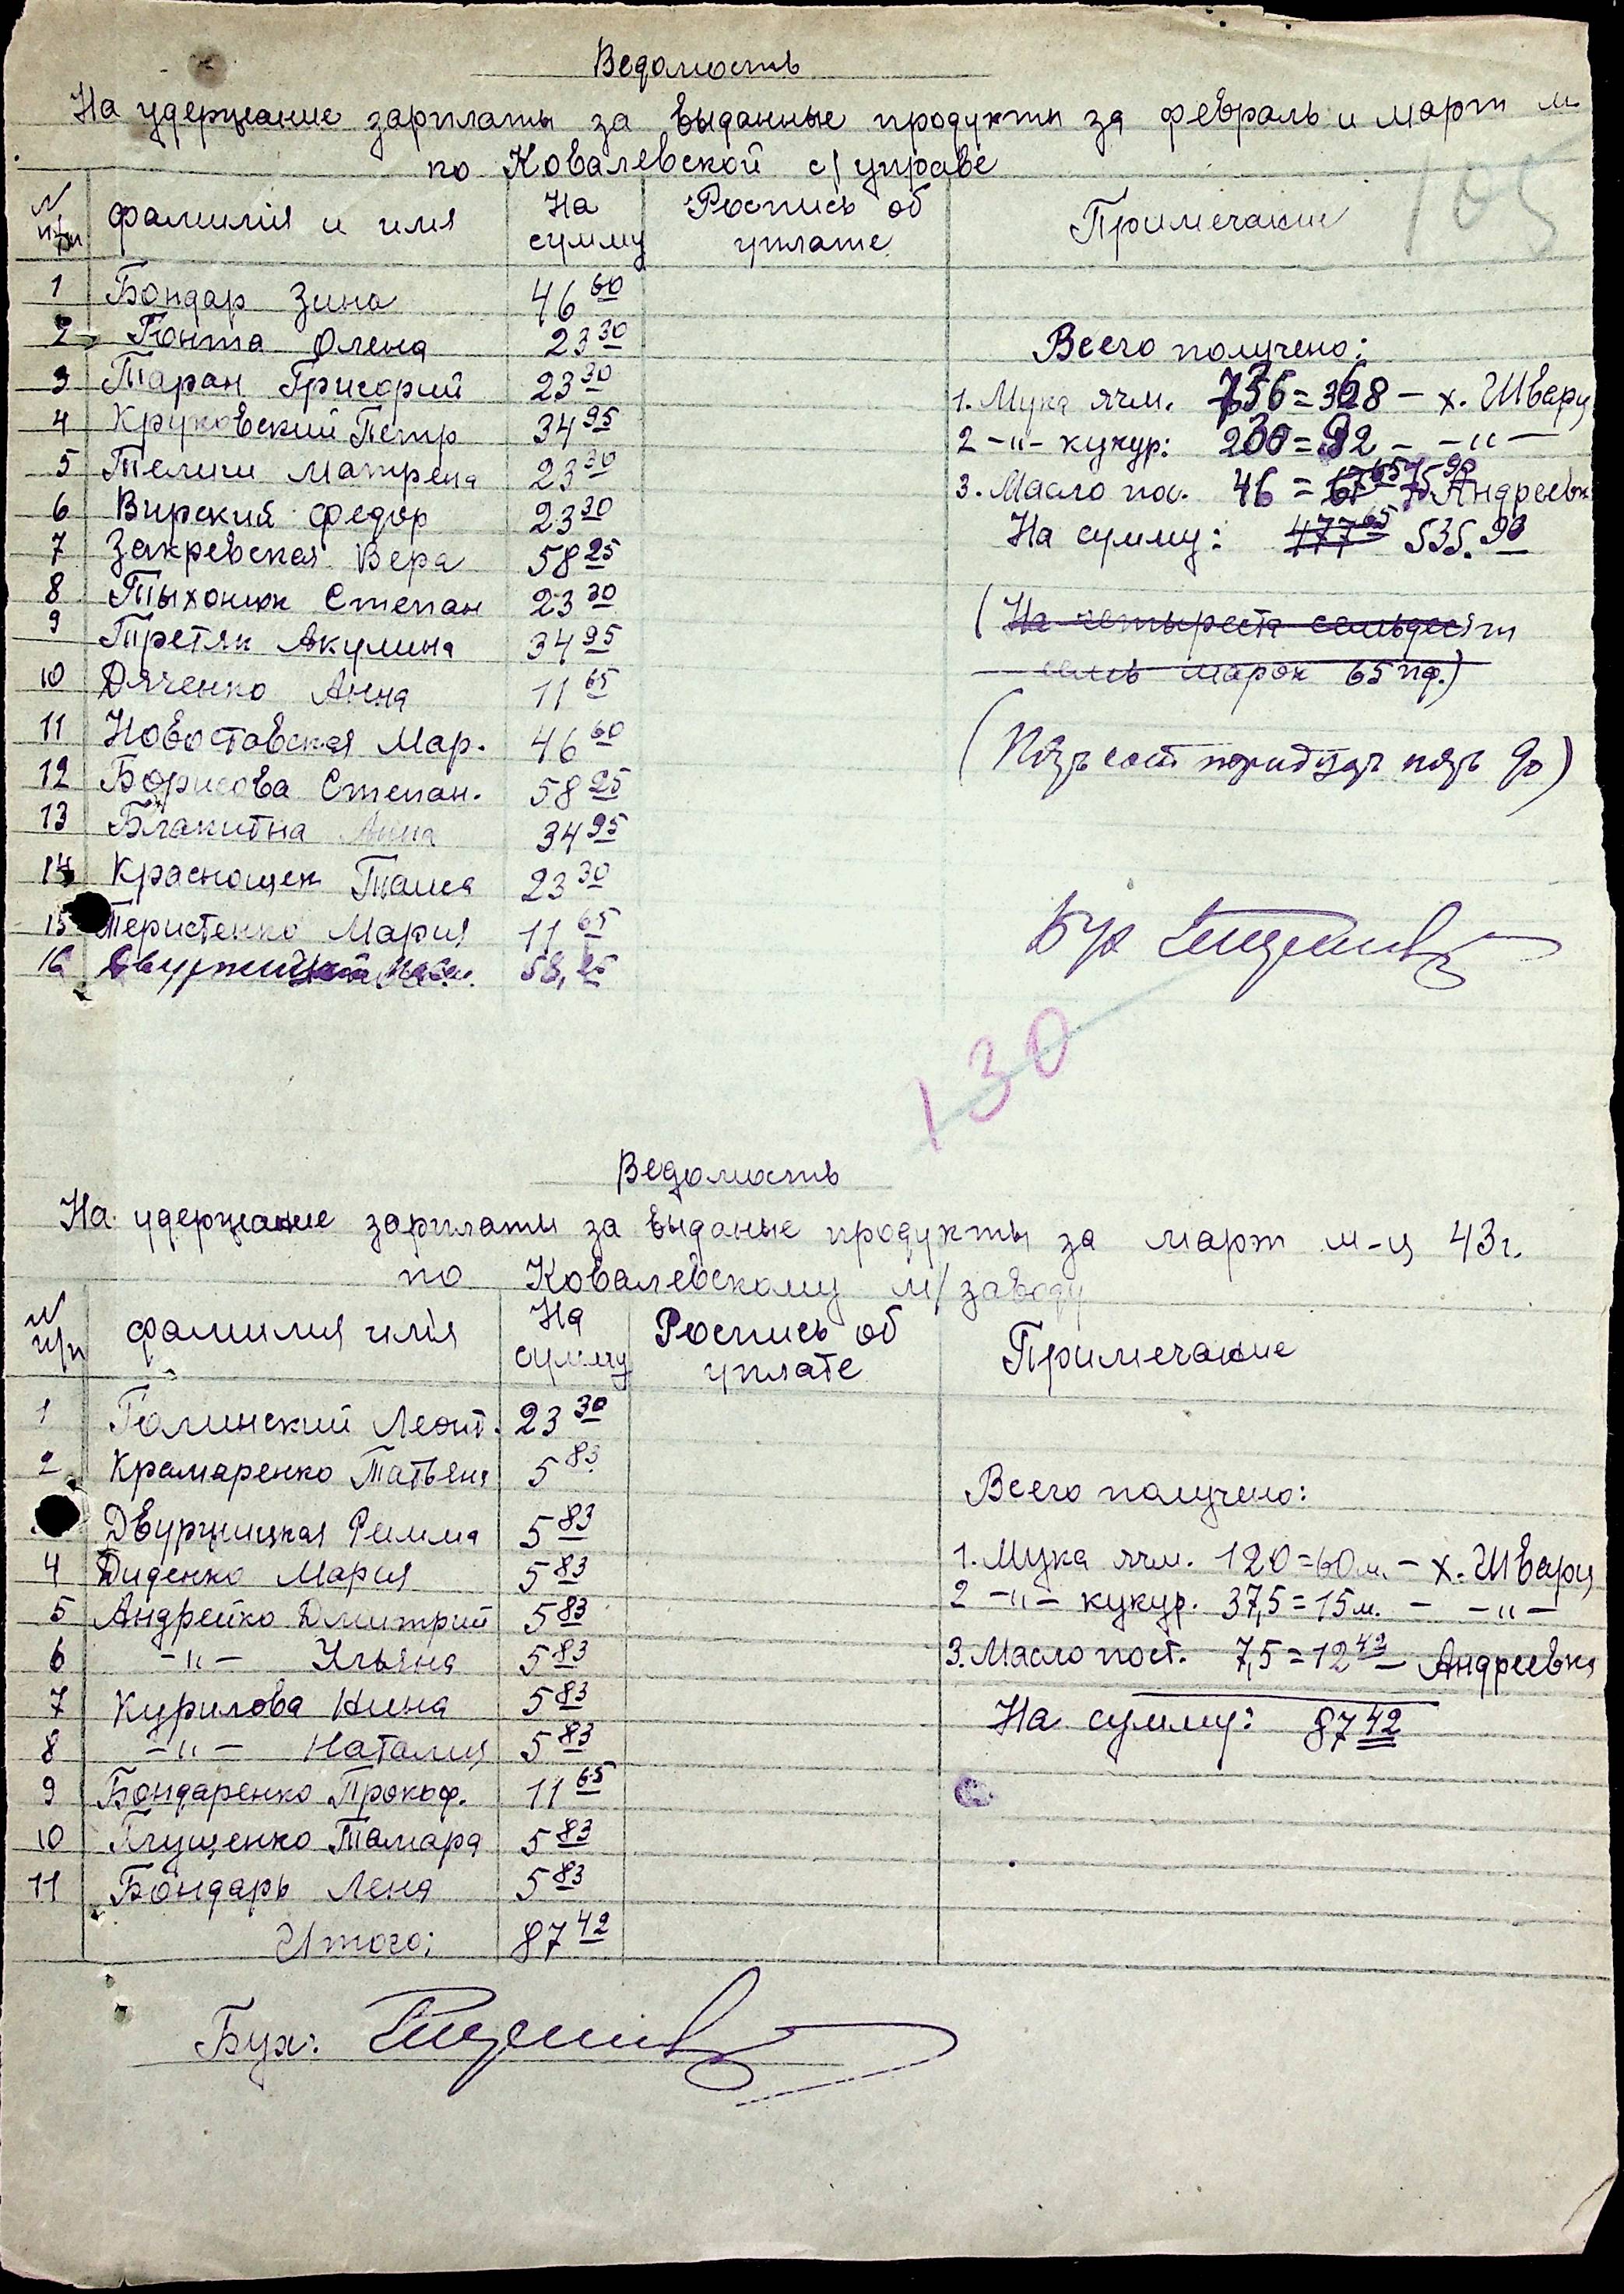 Ведомость
На удержание зарплаты за выданные продукты за февраль и март м-
по Ковалевской с/управе
N п/п фамилия и имя На сумму Роспись об уплате Примечание
105
1 Бондар Зина 46 60
2 Гонта Олена 23 30
Всего получено:
3 Таран Григорий 23 30
1. Мука ячм. 736 = 368 – х. Шварц
4 Круковский Петр 34 95
2 –"– кукур: 230 = 92 – –"–
5 Телиги Матрена 23 30
3. Масло по. 46 = 67 65 75 90 Андреевк
6 Вирский Федор 23 30
На сумму: 477 65 535.90
7 Закревская Вера 58 25
8 Тыхонюк Степан 23 30
(На четыреста семьдесят
9 Третяк Акулина 34 95
семь марок 65 пф.)
10 Дяченко Анна 11 65
11 Новоставская Мар. 46 60
(Пять сот тридцать пять 90)
12 Борисова Степан. 58 25
13 Блакитна Анна 34 95
14 Краснощек Таися 23 30
15 Теристенко Мария 11 65
Бух
16 58,25
130
Ведомость
На удержание зарплаты за выданые продукты за март м-ц 43 г.
по Ковалевскому м/заводу
N п/п фамилия имя На сумму Роспись об уплате Примечание
1 Голинский Леонт. 23 30
2 Крамаренко Татьяна 5 83
Всего получено:
Двуржицкая Римма 5 83
1. Мука ячм. 120 = 60 м. – х. Шварц
4 Диденко Мария 5 83
2 –"– кукур. 37,5 = 15 м. – –"–
5 Андрейко Дмитрий 5 83
3. Масло пост. 7,5 = 12 42 – Андреевка
6 –"– Ульяна 5 83
На сумму: 87 42
7 Курилова Нина 5 83
8 –"– Наталия 5 83
9 Бондаренко Прокоф. 11 65
10 Глущенко Тамара 5 83
11 Бондарь Лена 5 83
Итого: 87 42
Бух: